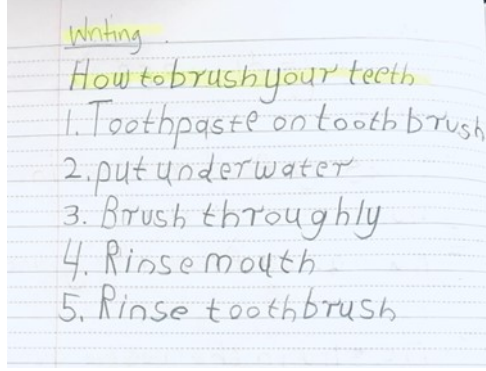 Writing.
How to brush your teeth
1. Toothpaste on tooth brush
2. put under water
3. Brush throughly
4. Rinse mouth
5. Rinse toothbrush